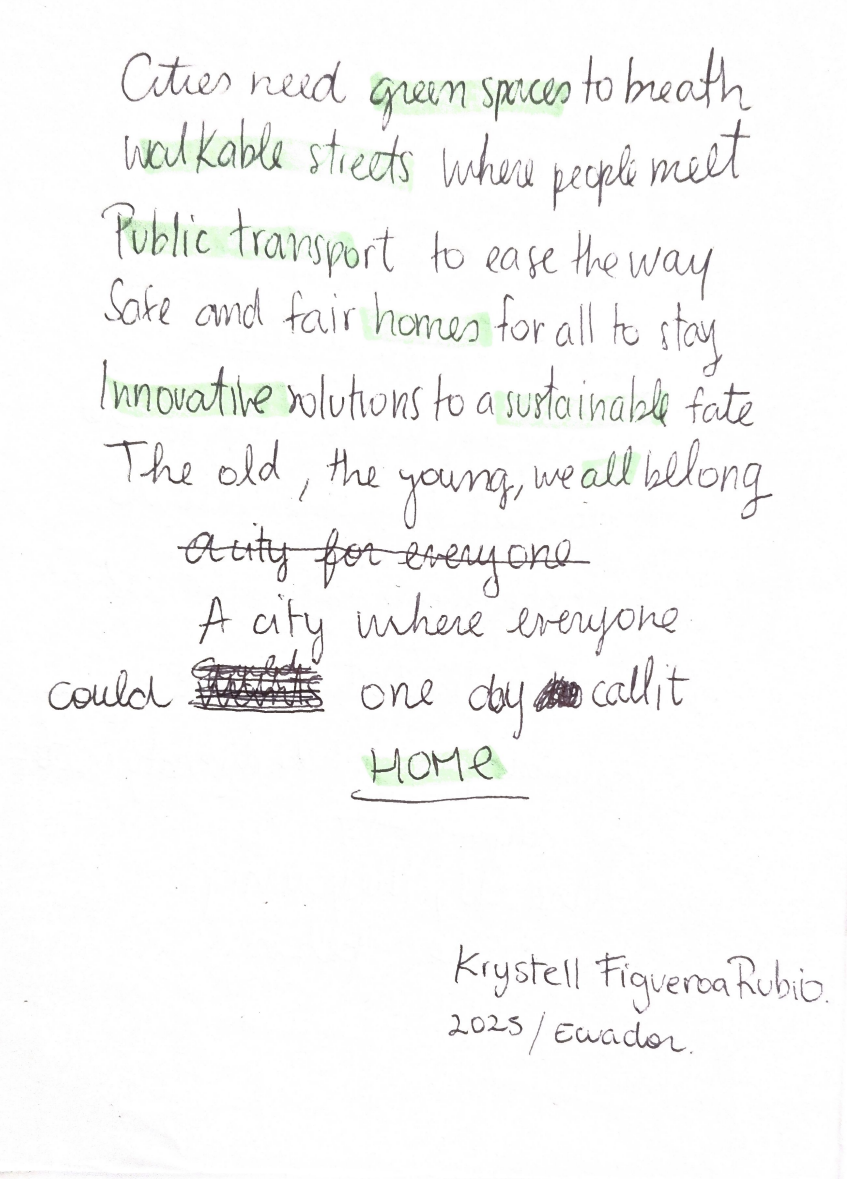 Cities need green spaces to breath
Walkable streets where people meet
Public transport to ease the way
Safe and fair homes for all to stay
Innovative solutions to a sustainable fate
The old, the young, we all belong
a city for everyone
A city where everyone
could one day call it
HOMe
Krystell Figueroa Rubio.
2025/Ecuador.